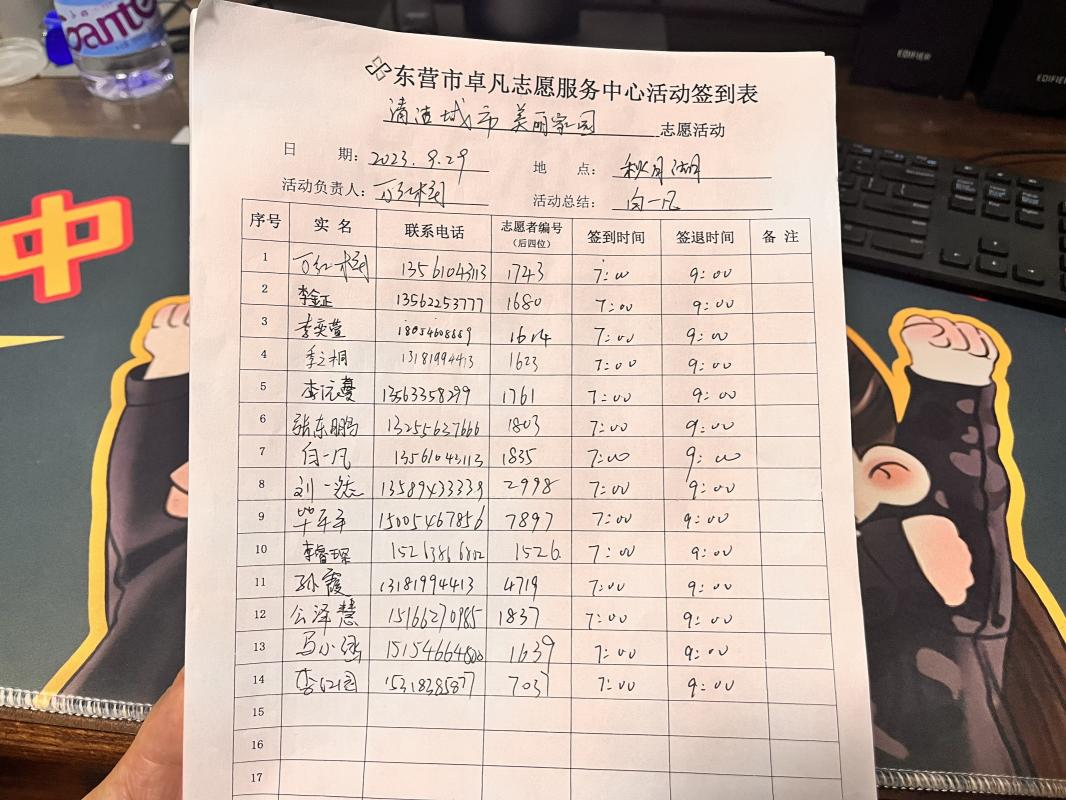 东营市卓凡志愿服务中心活动签到表
清洁城市 美丽家园 志愿活动
日 期: 2023.9.29 地 点: 秋月湖
活动负责人: 活动总结: 白一凡
序号 实 名 联系电话 志愿者编号(后四位) 签到时间 签退时间 备 注
1 13561043113 1743 7:00 9:00
2 李金正 13562253777 1680 7:00 9:00
3 李奕萱 18054608669 1614 7:00 9:00
4 李之桐 13181994413 1623 7:00 9:00
5 13563358299 1761 7:00 9:00
6 张东鹏 13255637666 1803 7:00 9:00
7 白一凡 13561043113 1835 7:00 9:00
8 刘一 13589433339 2998 7:00 9:00
9 毕军军 15005467856 7897 7:00 9:00
10 李睿琛 15263816802 1526 7:00 9:00
11 孙霞 13181994413 4719 7:00 9:00
12 公泽慧 15166270985 1837 7:00 9:00
13 马小 15154664800 1639 7:00 9:00
14 15318385877 7037 7:00 9:00
15
16
17
中
EDIFIER
EDIFIER